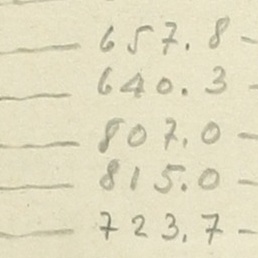 — 657.8 –
— 640.3 –
— 807.0 –
— 815.0 –
— 723.7 –